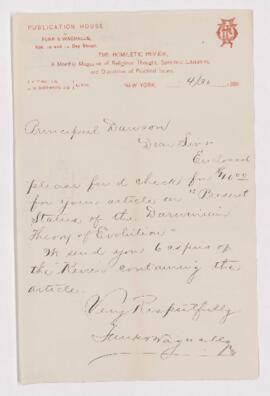 PUBLICATION HOUSE
OF
FUNK & WAGNALLS,
Nos. 18 and 20 Astor Place.
THE HOMILETIC REVIEW,
A Monthly Magazine of Religious Thought, Sermonic Literature,
and Discussion of Practical Issues.
NEW YORK, 4/30 189
Principal Dawson
Dear Sir:
Enclosed
please find check for $10.00
for your article on "Present
Status of the Darwinian
Theory of Evolution"
We send you 6 copies of
the Review containing the
article.
Very Respectfully
Funk & Wagnalls